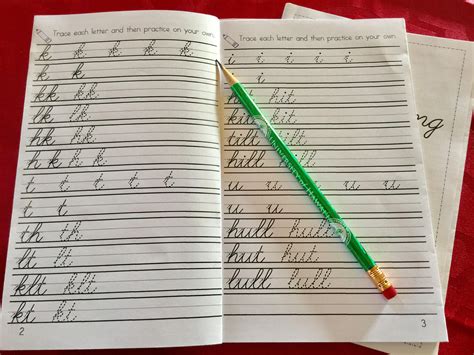 Trace each letter and then practice on your own.
k k k k k
k k
kk kk
lk lk
hk hk
h k h k
t t t t t
t t
th th
lt lt
klt klt
kt kt
2
Trace each letter and then practice on your own.
i i i i i
i
hit
kit kit
tilt
hill hill
u u u u
u u
hull hull
hut hut
lull lull
3
ng